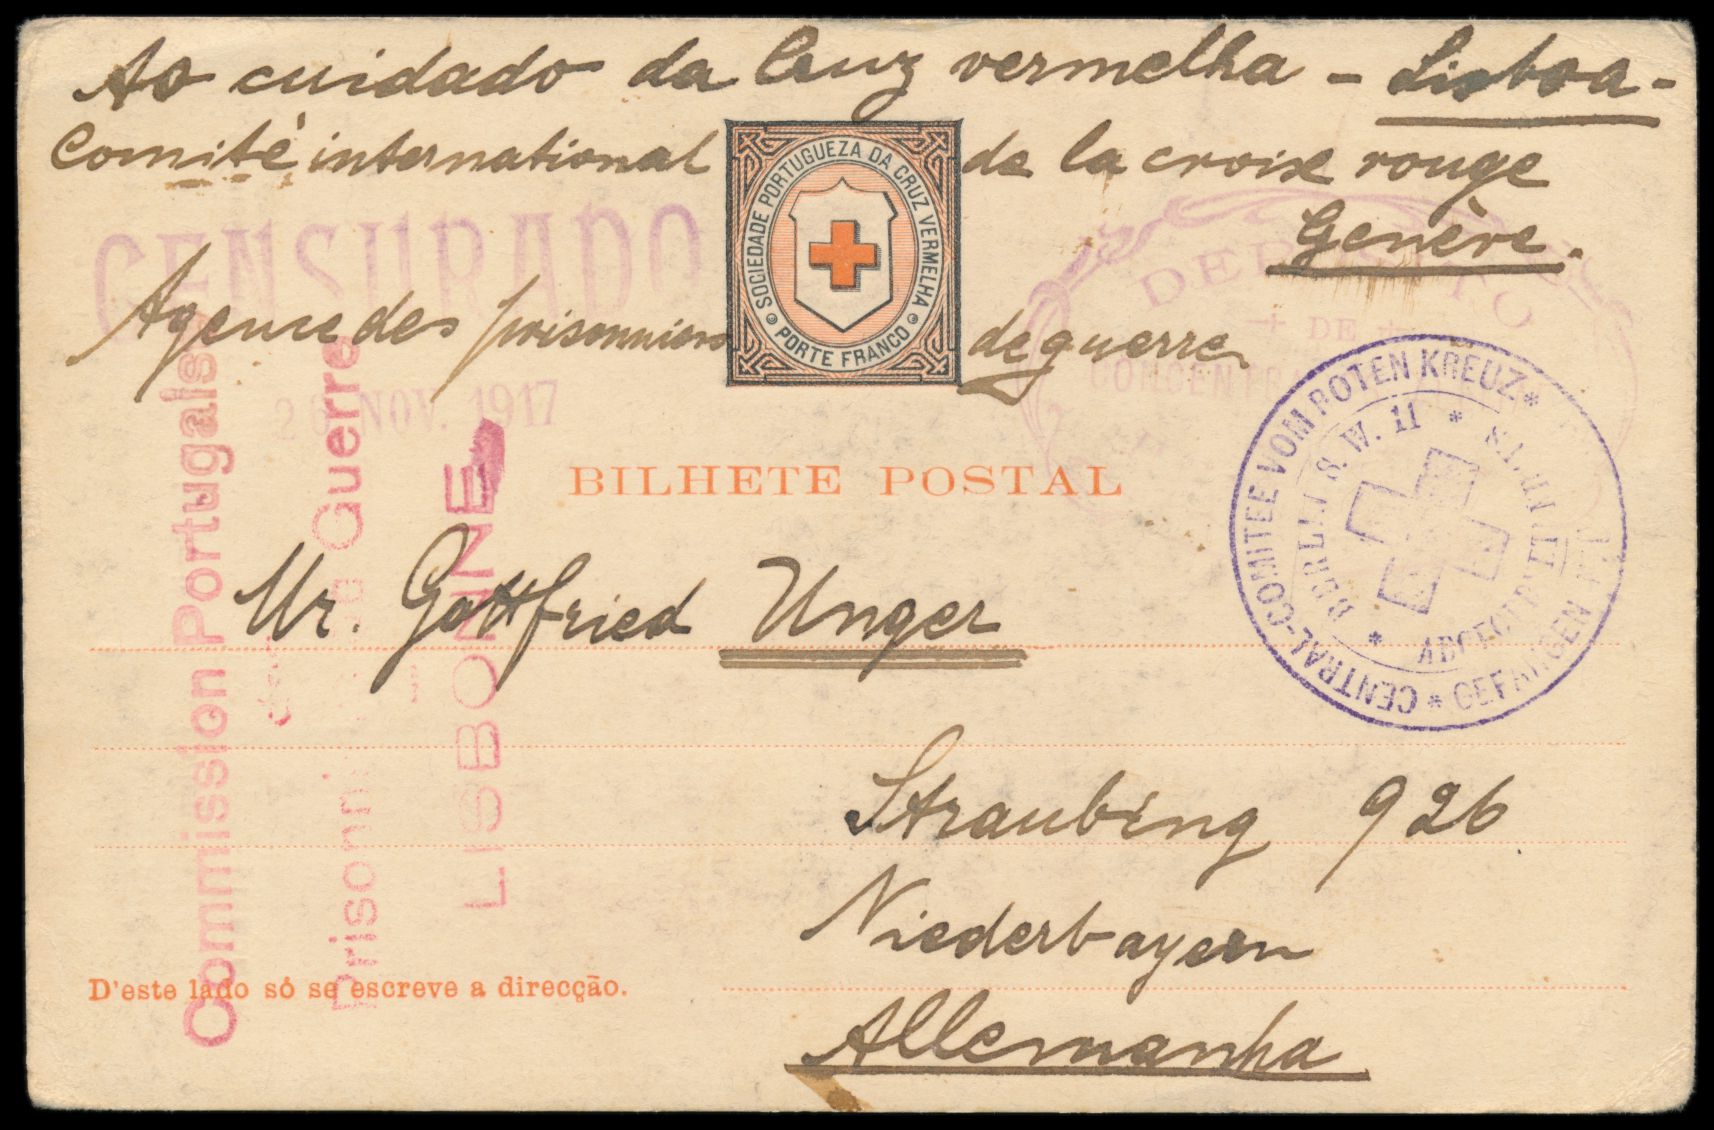 Ao cuidado da Cruz vermelha - Lisboa -
Comité international de la croix rouge
Genève.
Agence des prisonniers de guerre
SOCIEDADE PORTUGUEZA DA CRUZ VERMELHA
PORTE FRANCO
CENSURADO
26 NOV. 1917
DEPOSITO
DE
BILHETE POSTAL
CENTRAL-COMITEE VOM ROTEN KREUZ
BERLIN S. W. 11
Mr. Gottfried Unger
Straubing 926
Niederbayern
Allemanha
D'este lado só se escreve a direcção.
Commission Portugaise
Guerre
LISBONNE